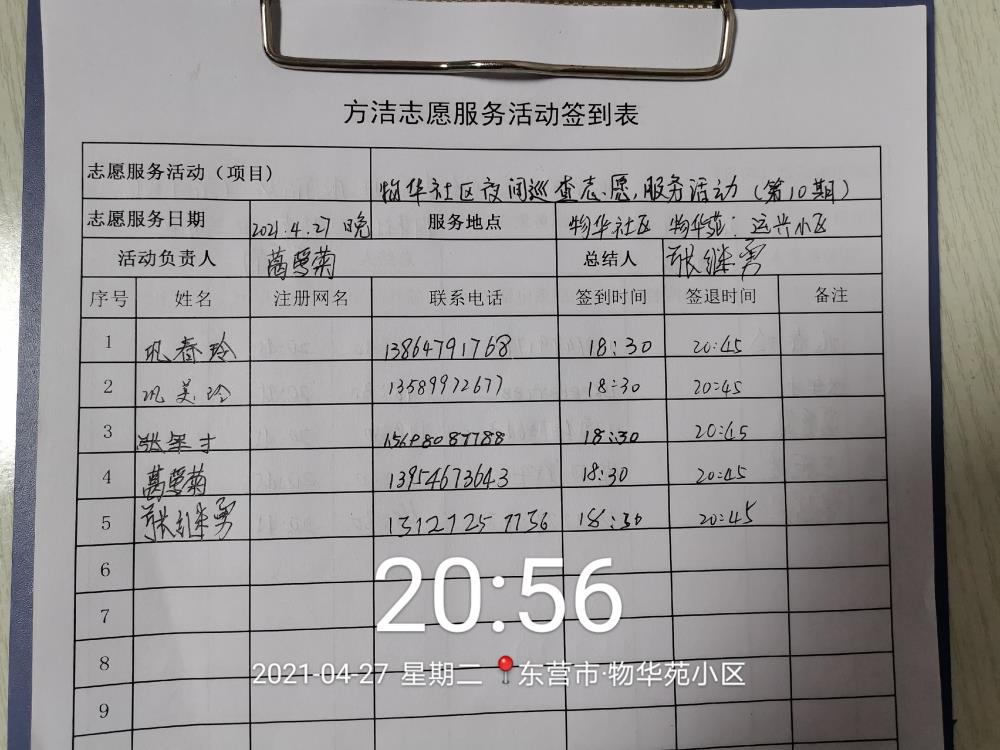 方洁志愿服务活动签到表
志愿服务活动（项目） 物华社区夜间巡查志愿服务活动（第10期）
志愿服务日期 2021.4.27 晚 服务地点 物华社区 物华苑: 运兴小区
活动负责人 葛雪菊 总结人 张继勇
序号 姓名 注册网名 联系电话 签到时间 签退时间 备注
1 巩春玲 13864791768 18:30 20:45
2 巩美玲 13589972677 18:30 20:45
3 18:30 20:45
4 葛雪菊 13954673643 18:30 20:45
5 张继勇 18:30 20:45
6
7
8
9
20:56
2021-04-27 星期二 东营市·物华苑小区